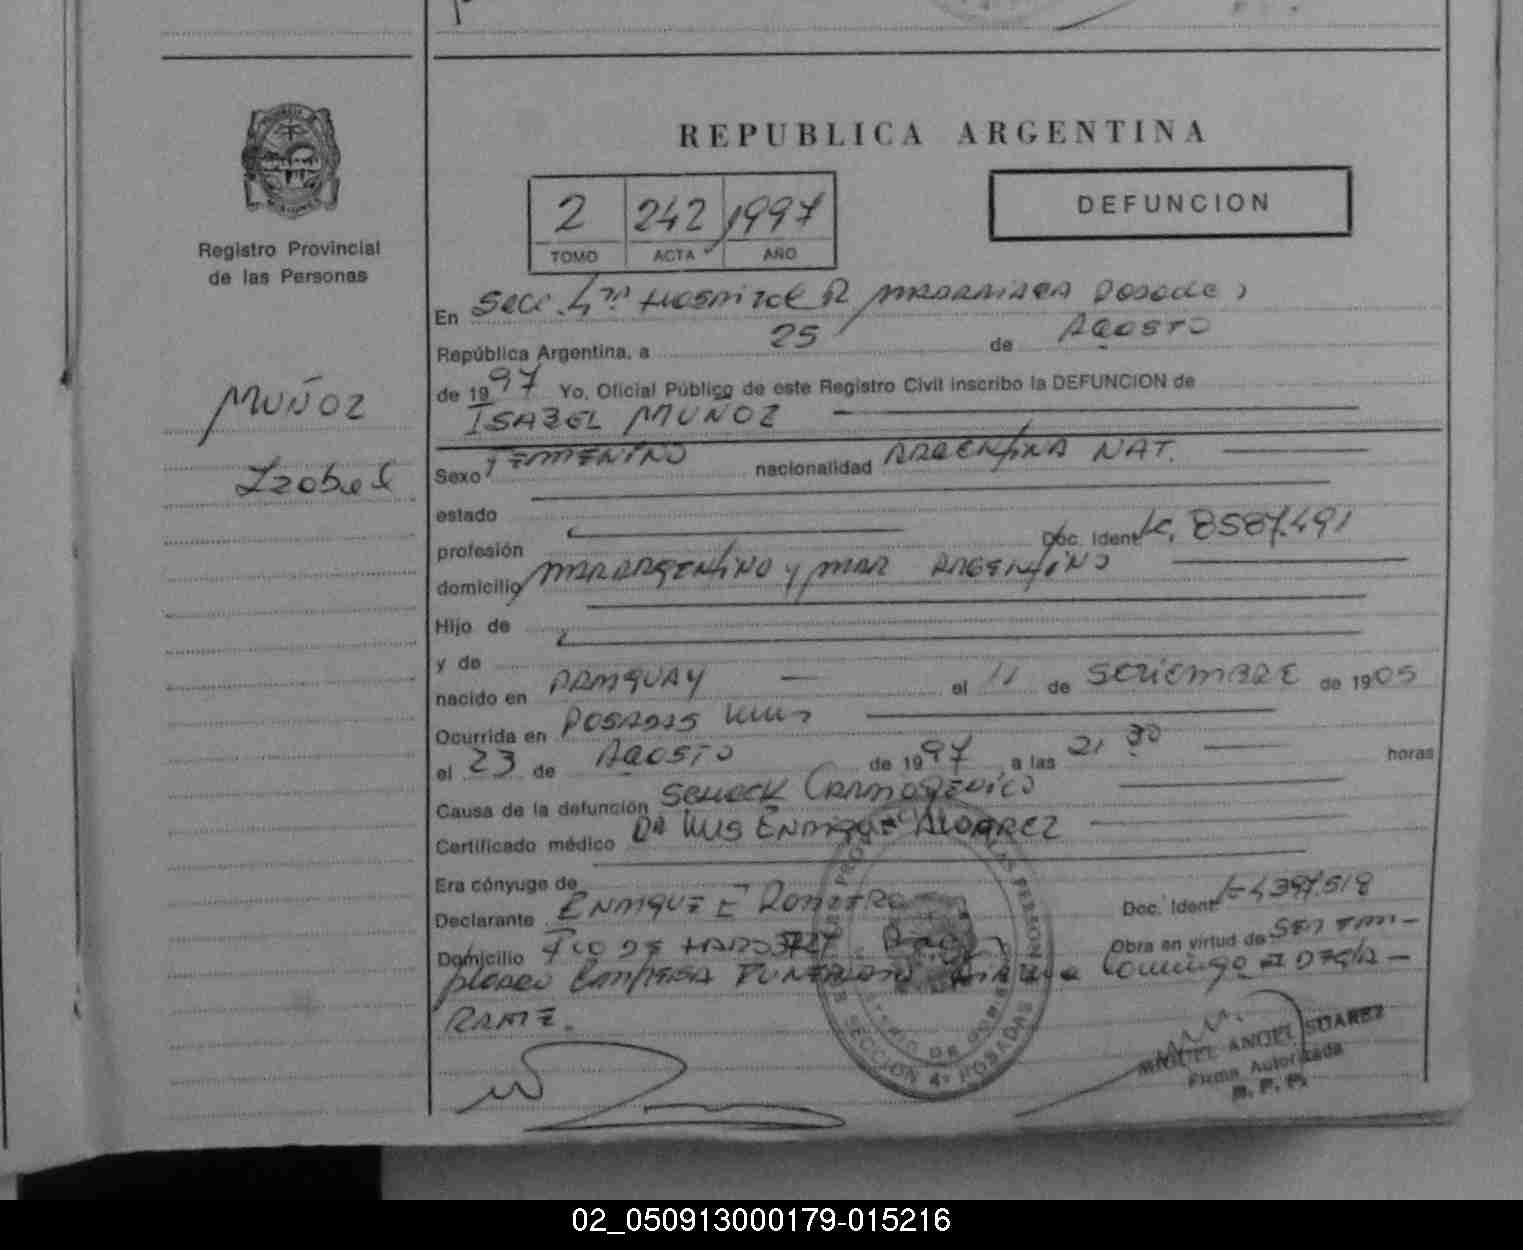 REPUBLICA ARGENTINA
DEFUNCION
2 242 1997
TOMO ACTA AÑO
Registro Provincial
de las Personas
MUÑOZ
Isabel
En Secc. 4ta Hospital R Madariaga Posadas,
República Argentina, a 25 de AGOSTO
de 1997 Yo, Oficial Público de este Registro Civil inscribo la DEFUNCION de
ISABEL MUÑOZ
Sexo FEMENINO nacionalidad ARGENTINA NAT.
estado
profesión Doc. Ident 8587.491
domicilio MAR ARGENTINO y MAR ARGENTINO
Hijo de
y de
nacido en PARAGUAY el 11 de SETIEMBRE de 1905
Ocurrida en POSADAS
el 23 de AGOSTO de 1997 a las 21 30 horas
Causa de la defunción SCHOCK CARDIOGENICO
Certificado médico Dr LUIS ENRIQUE ALVAREZ
Era cónyuge de
Declarante ENRIQUE E ROMERO Doc. Ident 4397.518
Domicilio 3727 Obra en virtud de SER EM-
pleado EMPRESA FUNERARIA
RANTE.
SECCION 4ª POSADAS
MIGUEL ANGEL SUAREZ
Firma Autorizada
R. P. P.
02_050913000179-015216